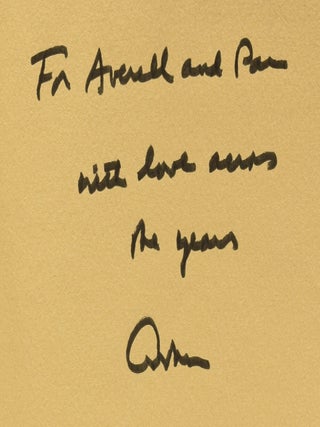 For Averell and Pam
with love across
the years
Arthur